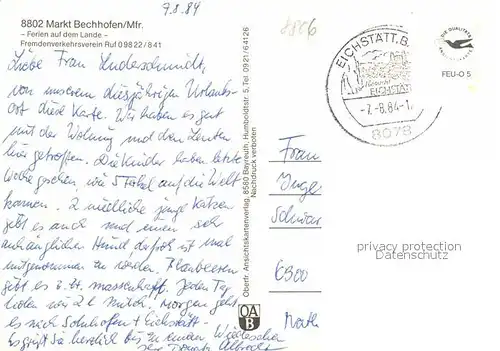 7.8.84
8802 Markt Bechhofen/Mfr.
– Ferien auf dem Lande –
Fremdenverkehrsverein Ruf 09822/841
Liebe Frau Linderschmidt,
von unserem diesjährigen Urlaubs-
ort diese Karte. Wir haben es gut
mit der Wohnung und den Leuten
hier getroffen. Die Kinder haben letzte
Woche gesehen, wie 5 Ferkel auf die Welt
kamen. 2 niedliche junge Katzen
gibt es auch und einen sehr
anhänglichen Hund, der froh ist mal
mitgenommen zu werden. Blaubeeren
gibt es z. Zt. massenhaft. Jeden Tag
holen wir 2 l Milch. Morgen geht
es nach Solnhofen + Eichstätt.
Es grüßt Sie herzlich bis zu einem Wiedersehen
Ihre
Oberfr. Ansichtskartenverlag, 8580 Bayreuth, Humboldtstr. 5, Tel. 0921/64126
Nachdruck verboten
OA
B
EICHSTÄTT, B
EICHSTÄTT
-7.-8.84-1
8078
DIE QUALITÄTS
FEU-O 5
Frau
Inge
Schwar
6300
privacy protection
Datenschutz